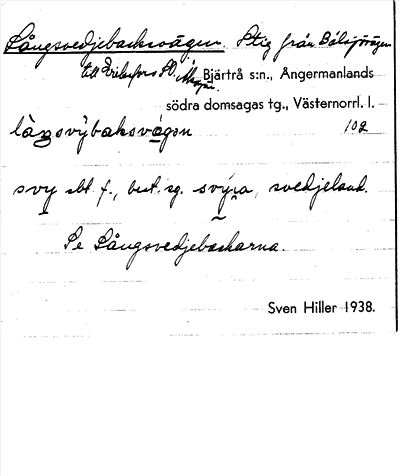 Långsvedjebacksvägen. Stig från Bålsjövägen
till Eriksfors St. Bjärtrå s:n., Ångermanlands
södra domsagas tg., Västernorrl. l.
làŋsvýbaksvǻgən 102
svy sbt. f., best. sg. svýɳa, svedjeland.
Se Långsvedjebackarna.
Sven Hiller 1938.